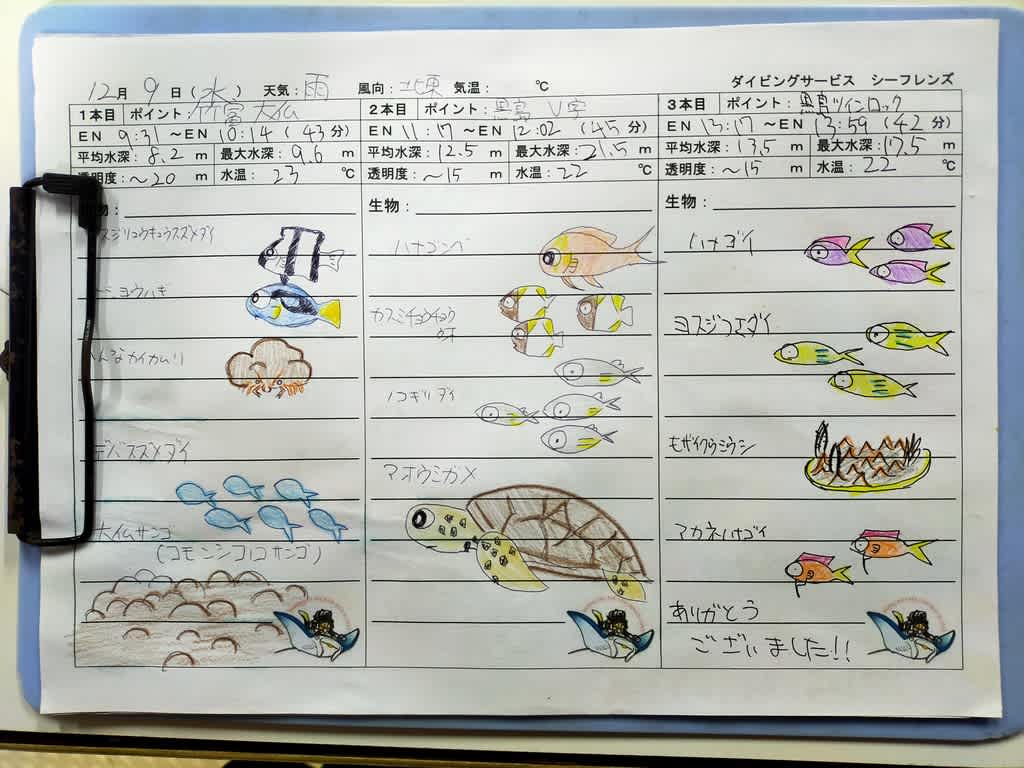 ダイビングサービス シーフレンズ
12月 9日(水) 天気:雨 風向:北東 気温: ℃
1本目 ポイント:竹富 大仏
EN 9:31 ~EN 10:14 (43分)
平均水深:8.2 m 最大水深:9.6 m
透明度:~20 m 水温:23 ℃
物:
スジリュウキュウスズメダイ
ンヨウハギ
んなカイカムリ
デバスズメダイ
大仏サンゴ
(コモンシコロサンゴ)
2本目 ポイント:黒島 V字
EN 11:17 ~EN 12:02 (45分)
平均水深:12.5 m 最大水深:21.5 m
透明度:~15 m 水温:22 ℃
生物:
ハナゴンベ
カスミチョウチョウ
ウオ
ノコギリダイ
アオウミガメ
3本目 ポイント:黒島ツインロック
EN 13:17 ~EN 13:59 (42分)
平均水深:13.5 m 最大水深:17.5 m
透明度:~15 m 水温:22 ℃
生物:
ハナゴイ
ヨスジフエダイ
モザイクウミウシ
アカネハナゴイ
ありがとう
ございました!!